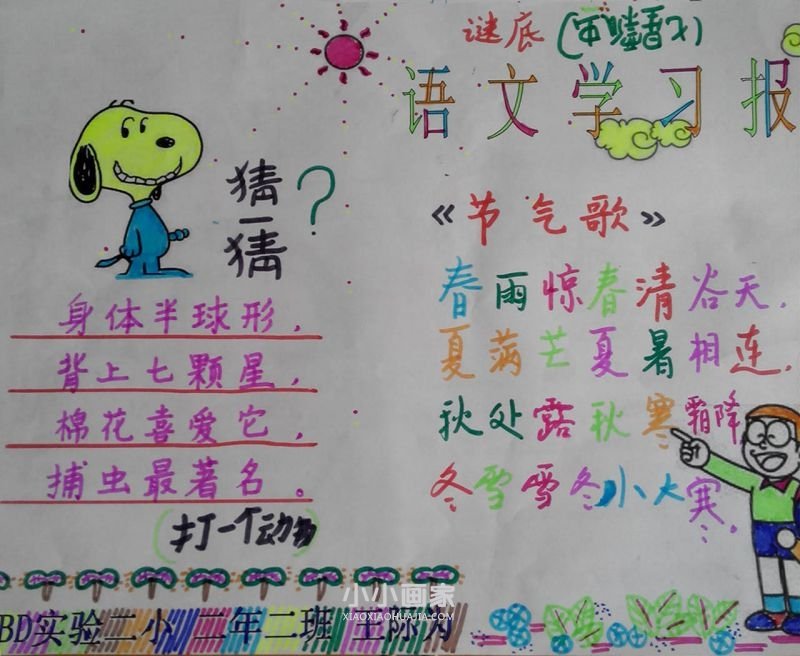 谜底(七星瓢虫)
语文学习报
猜一猜?
身体半球形,
背上七颗星,
棉花喜爱它,
捕虫最著名。
(打一个动物)
《节气歌》
春雨惊春清谷天,
夏满芒夏暑相连,
秋处露秋寒霜降
冬雪雪冬小大寒。
BD实验二小 二年二班 王
小小画家
XIAOXIAOHUAJIA.COM